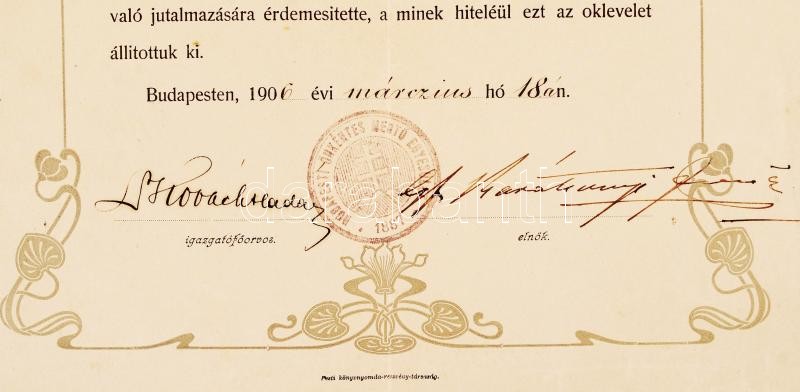 való jutalmazására érdemesitette, a minek hiteléül ezt az oklevelet
állitottuk ki.
Budapesten, 1906 évi márczius hó 18án.
BUDAPESTI ÖNKÉNTES MENTŐ EGYES
1887
Dr Kovách Aladár
gf Karátsonyi Jenő
igazgatófőorvos.
elnök.
darabanth
Pesti könyvnyomda-részvény-társaság.